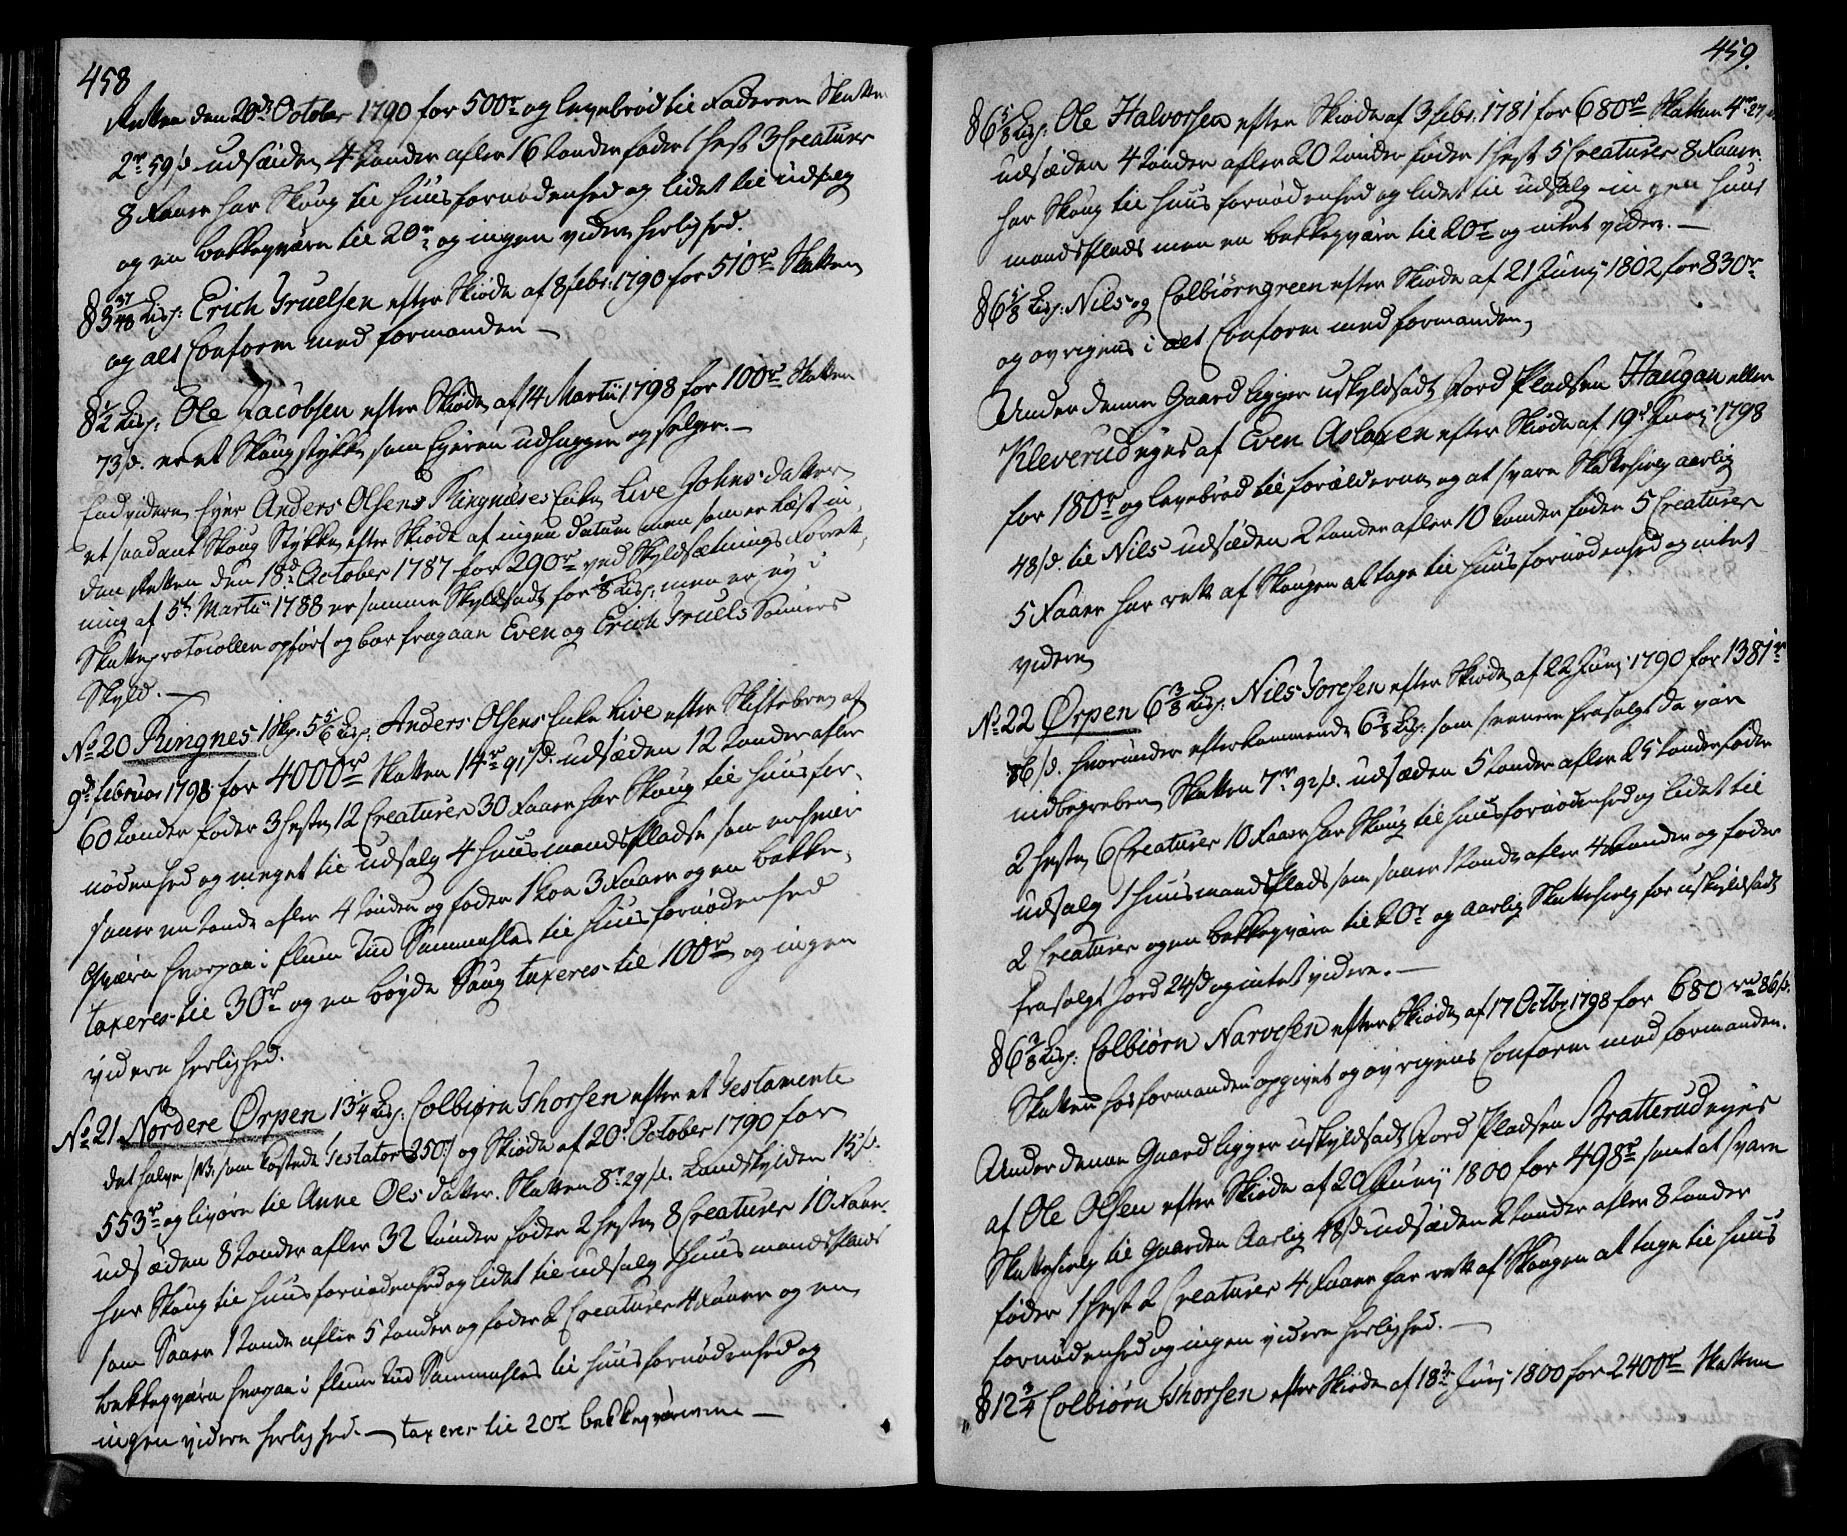 458
Retten den 20de October 1790 for 500r og levebrød til Faderen Skatten
2r 59s udsæden 4 tønder afler 16 tønder føder 1 hest 3 Creaturer
8 Faaer har Skoug til huusfornødenhed og lidet til udsalg
og en bekkeqværn til 20r og ingen videre herlighed.
§ 3 37/48 Lisp: Erich Truelsen efter Skiøde af 8 febr: 1790 for 510r Skatten
og alt Conform med formanden —
§ 1/2 Lisp: Ole Jacobsen efter Skiøde af 14 Martii 1798 for 100r Skatten
73s. er et Skougstykke som Eyeren udhugger og selger. —
Endvidere eyer Anders Olsens Ringnæses Enke Live Johnsdatter
et saadant Skoug Stykke efter Skiøde af ingen datum men som er læst in-
den Retten den 18d October 1787 for 290r ved Skyldsætnings Forret-
ning af 5te Martii 1788 er samme Skyldsadt for Lisp: men er ey i
Skatteprotocollen opført og bør fragaae Even og Erich Truels Sønners
Skyld. —
No 20 Ringnes 1 Skp. 5 5/6 Lisp: Anders Olsens Enke Live efter Skiftebrev af
9de februar 1798 for 4000r Skatten 14r 91s. udsæden 12 tønder afler
60 tønder føder 3 heste 12 Creaturer 30 Faaer har Skoug til huusfor-
nødenhed og meget til udsalg 4 huusmandspladse som enhver
saaer en tønde afler 4 tønder og føder 1 koe 3 Faaer og en bekke-
qværn hvorpaa i flum Tiid Sammahles til huusfornødenhed
taxeres til 30r og en bøyde Saug taxeres til 100r og ingen
videre herlighed.
No 21 Nordere Ørpen 13 1/4 Lisp: Colbiørn Thorsen efter et Testamente
det halve /NB som kostede Testator 250/ og Skiøde af 20d October 1790 for
553r og livøre til Anne Olsdatter. Skatten 8r 29s. Landskylden 15s.
udsæden 8 tønder afler 32 tønder føder 2 heste 8 Creaturer 10 Faaer
har Skoug til huusfornødenhed og lidet til udsalg 1 huusmandsplads
som Saaer 1 tønde afler 5 tønder og føder 2 Creaturer 4 Faaer og en
bekkeqværn hvorpaa i flum tiid Sammahles til huusfornødenhed og
ingen videre herlighed. — taxeres til 20r bekkeqværnene —
459.
§ 6 5/8 Lisp: Ole Halvorsen efter Skiøde af 3 febr: 1781 for 680r Skatten 4r 27s
udsæden 4 tønder afler 20 tønder føder 1 hest 5 Creaturer 8 Faaer
har Skoug til huusfornødenhed og lidet til udsalg ingen huus
mandsplads men en bekkeqværn til 20r og intet videre. —
§ 6 5/8 Lisp: Nils og Colbiørn green efter Skiøde af 21 Junij 1802 for 830r
og øvrigens i alt Conform med formanden
Under denne Gaard ligger uskyldsadt Jord Pladsen Haugan eller
Kleverud eyes af Even Aslaxen efter Skiøde af 19d Junij 1798
for 180r og levebrød til forældrene og at svare Skattehielp aarlig
48s. til Nils udsæden 2 tønder afler 10 tønder føder 5 Creaturer
5 Faaer har rett af Skougen at tage til huusfornødenhed og intet
videre
No 22 Ørpen 6 3/8 Lisp: Nils Toresen efter Skiøde af 22 Junij 1790 for 1381r
86s. hvorunder efterkommende 6 3/8 Lisp: som seenere frasolgt da var
indbegreben Skatten 7r 92s. udsæden 5 tønder afler 25 tønder føder
2 heste 6 Creaturer 10 Faaer har Skoug til huusfornødenhed og lidet til
udsalg 1 huusmandsplads som saaer 1 tønde afler 4 tønder og føder
2 Creaturer og en bekkeqværn til 20r og aarlig Skattehielp for uskyldsadt
frasolgt Jord 24s og intet videre. —
§ 6 3/8 Lisp: Colbiørn Narvesen efter Skiøde af 17 Octbr 1798 for 680r 86s.
Skatten hos formanden opgivet og øvrigens Conform med formanden.
Under denne Gaard ligger uskyldsadt Jord Pladsen Bratterud eyes
af Ole Olsen efter Skiøde af 20 Junij 1800 for 498r samt at svare
Skattehielp til Gaarden Aarlig 48s udsæden 2 tønder afler 8 tønder
føder 1 hest 2 Creaturer 4 Faaer har rett af Skougen at tage til huus
fornødenhed og ingen videre herlighed. —
§ 12 3/4 Colbiørn Thorsen efter Skiøde af 18de Junij 1800 for 2400r Skatten